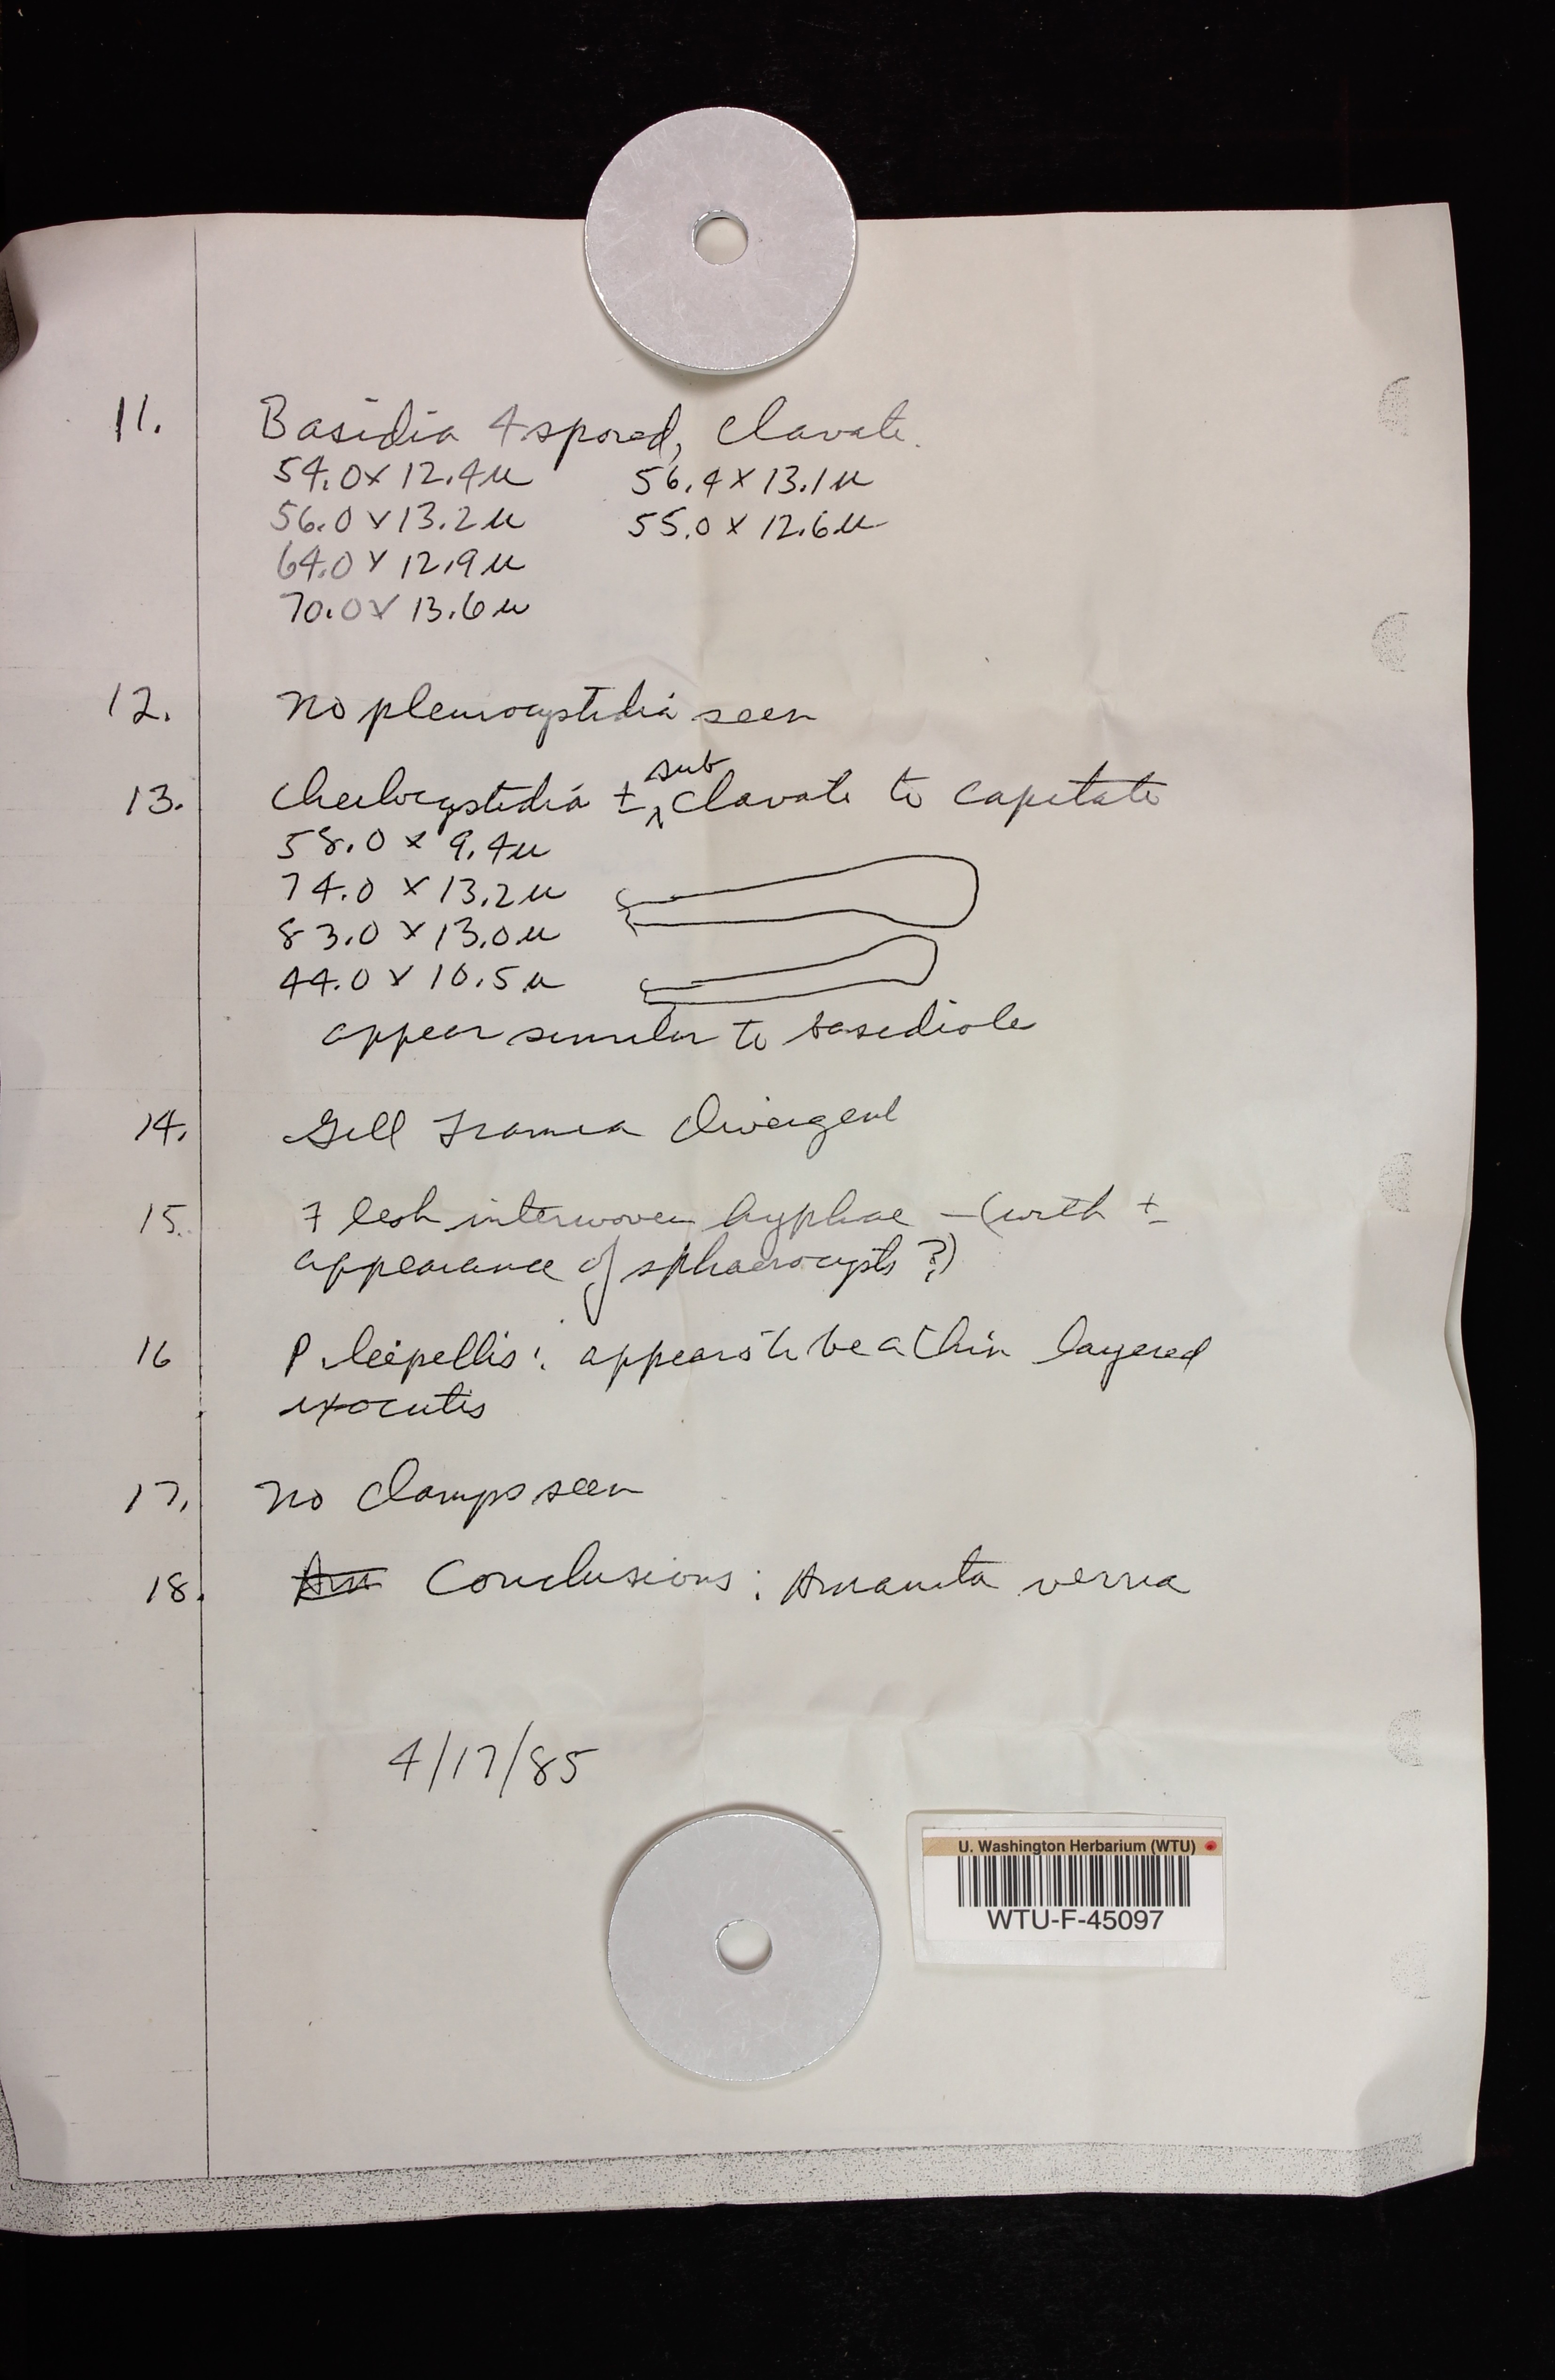 11. Basidia 4 spored, clavate.
54.0 x 12.4 u 56.4 x 13.1 u
56.0 x 13.2 u 55.0 x 12.6 u
64.0 x 12.9 u
70.0 x 13.6 u
12. No pleurocystidia seen
13. Cheilocystidia ± sub clavate to capitate
58.0 x 9.4 u
74.0 x 13.2 u
83.0 x 13.0 u
44.0 x 10.5 u
appear similar to basidiole
14. Gill Trama divergent
15. Flesh interwoven hyphae – (with ±
appearance of sphaerocysts ?)
16 Pileipellis: appears to be a thin layered
ixocutis
17. No clamps seen
18. Am Conclusions: Amanita verna
4/17/85
U. Washington Herbarium (WTU)
WTU-F-45097